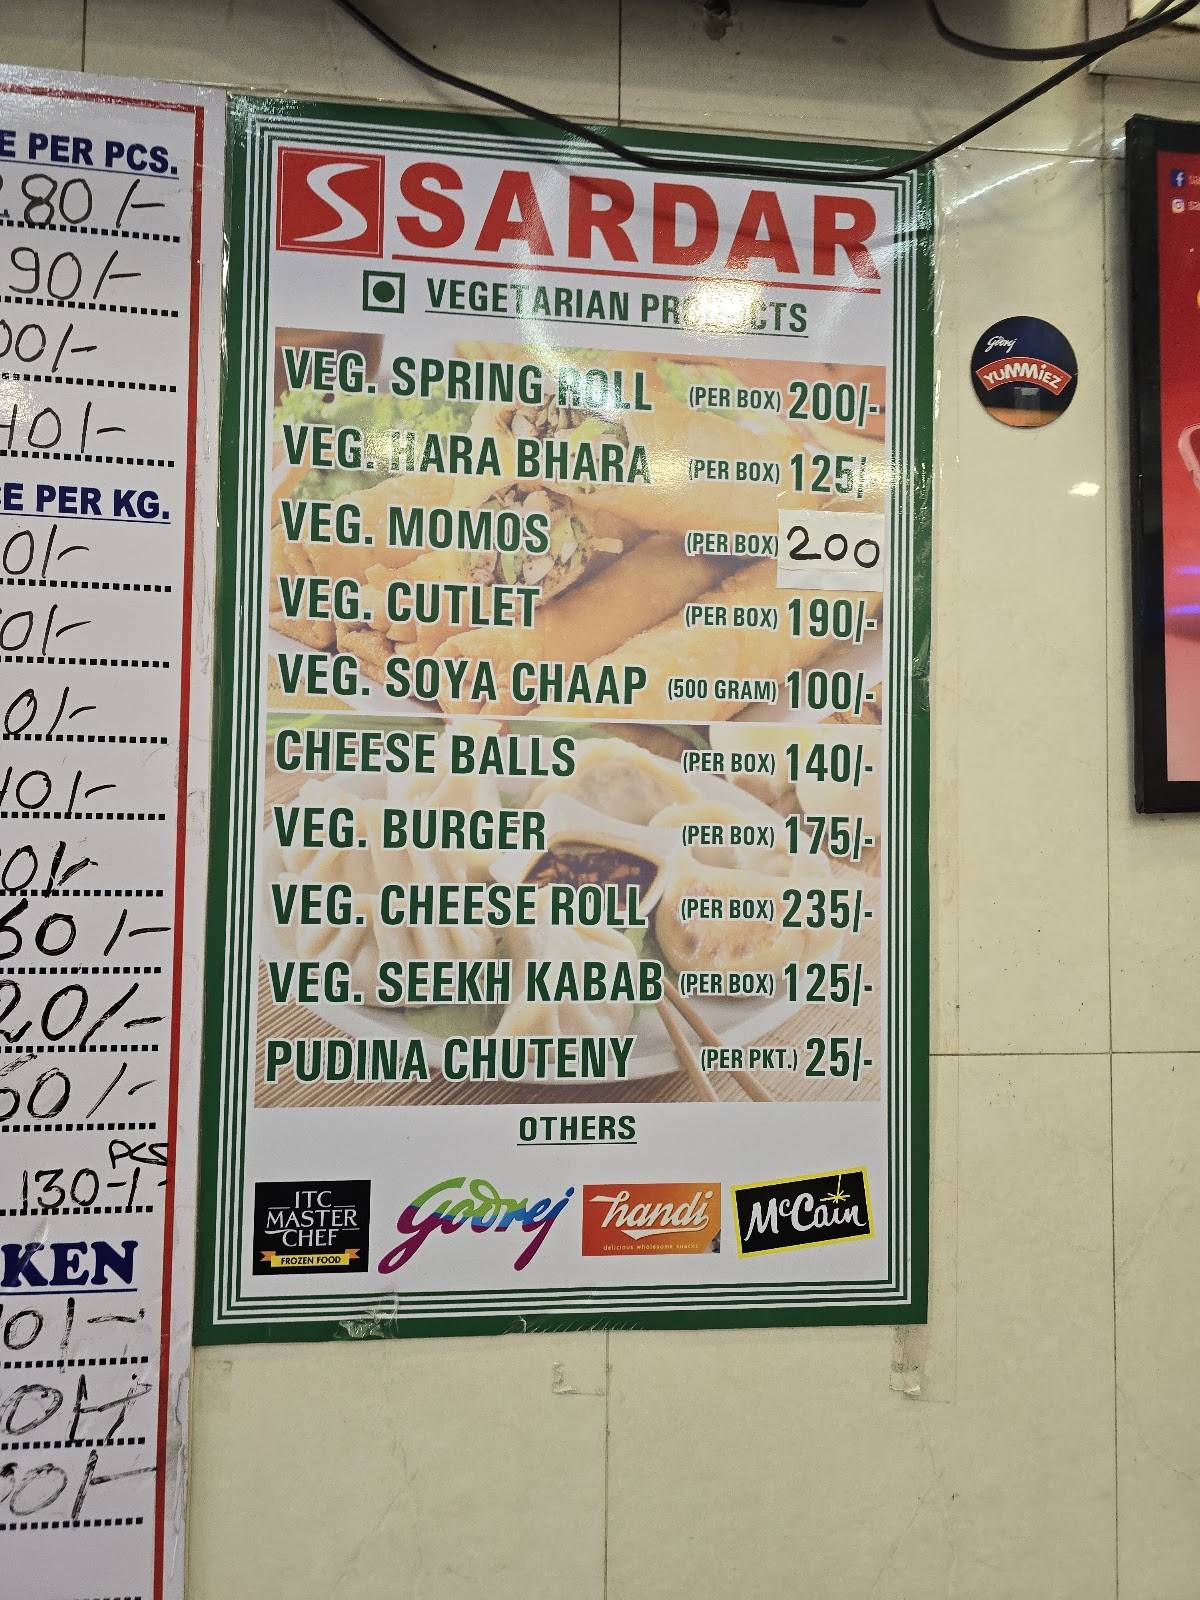 E PER PCS.
80/-
90/-
00/-
40/-
E PER KG.
0/-
0/-
0/-
40/-
0/-
60/-
20/-
50/-
130-/- PCS
KEN
SARDAR
VEGETARIAN PRODUCTS
VEG. SPRING ROLL (PER BOX) 200/-
VEG. HARA BHARA (PER BOX) 125/-
VEG. MOMOS (PER BOX) 200
VEG. CUTLET (PER BOX) 190/-
VEG. SOYA CHAAP (500 GRAM) 100/-
CHEESE BALLS (PER BOX) 140/-
VEG. BURGER (PER BOX) 175/-
VEG. CHEESE ROLL (PER BOX) 235/-
VEG. SEEKH KABAB (PER BOX) 125/-
PUDINA CHUTENY (PER PKT.) 25/-
OTHERS
ITC
MASTER
CHEF
FROZEN FOOD
Godrej
handi
delicious wholesome snacks
McCain
Godrej
YUMMIEZ